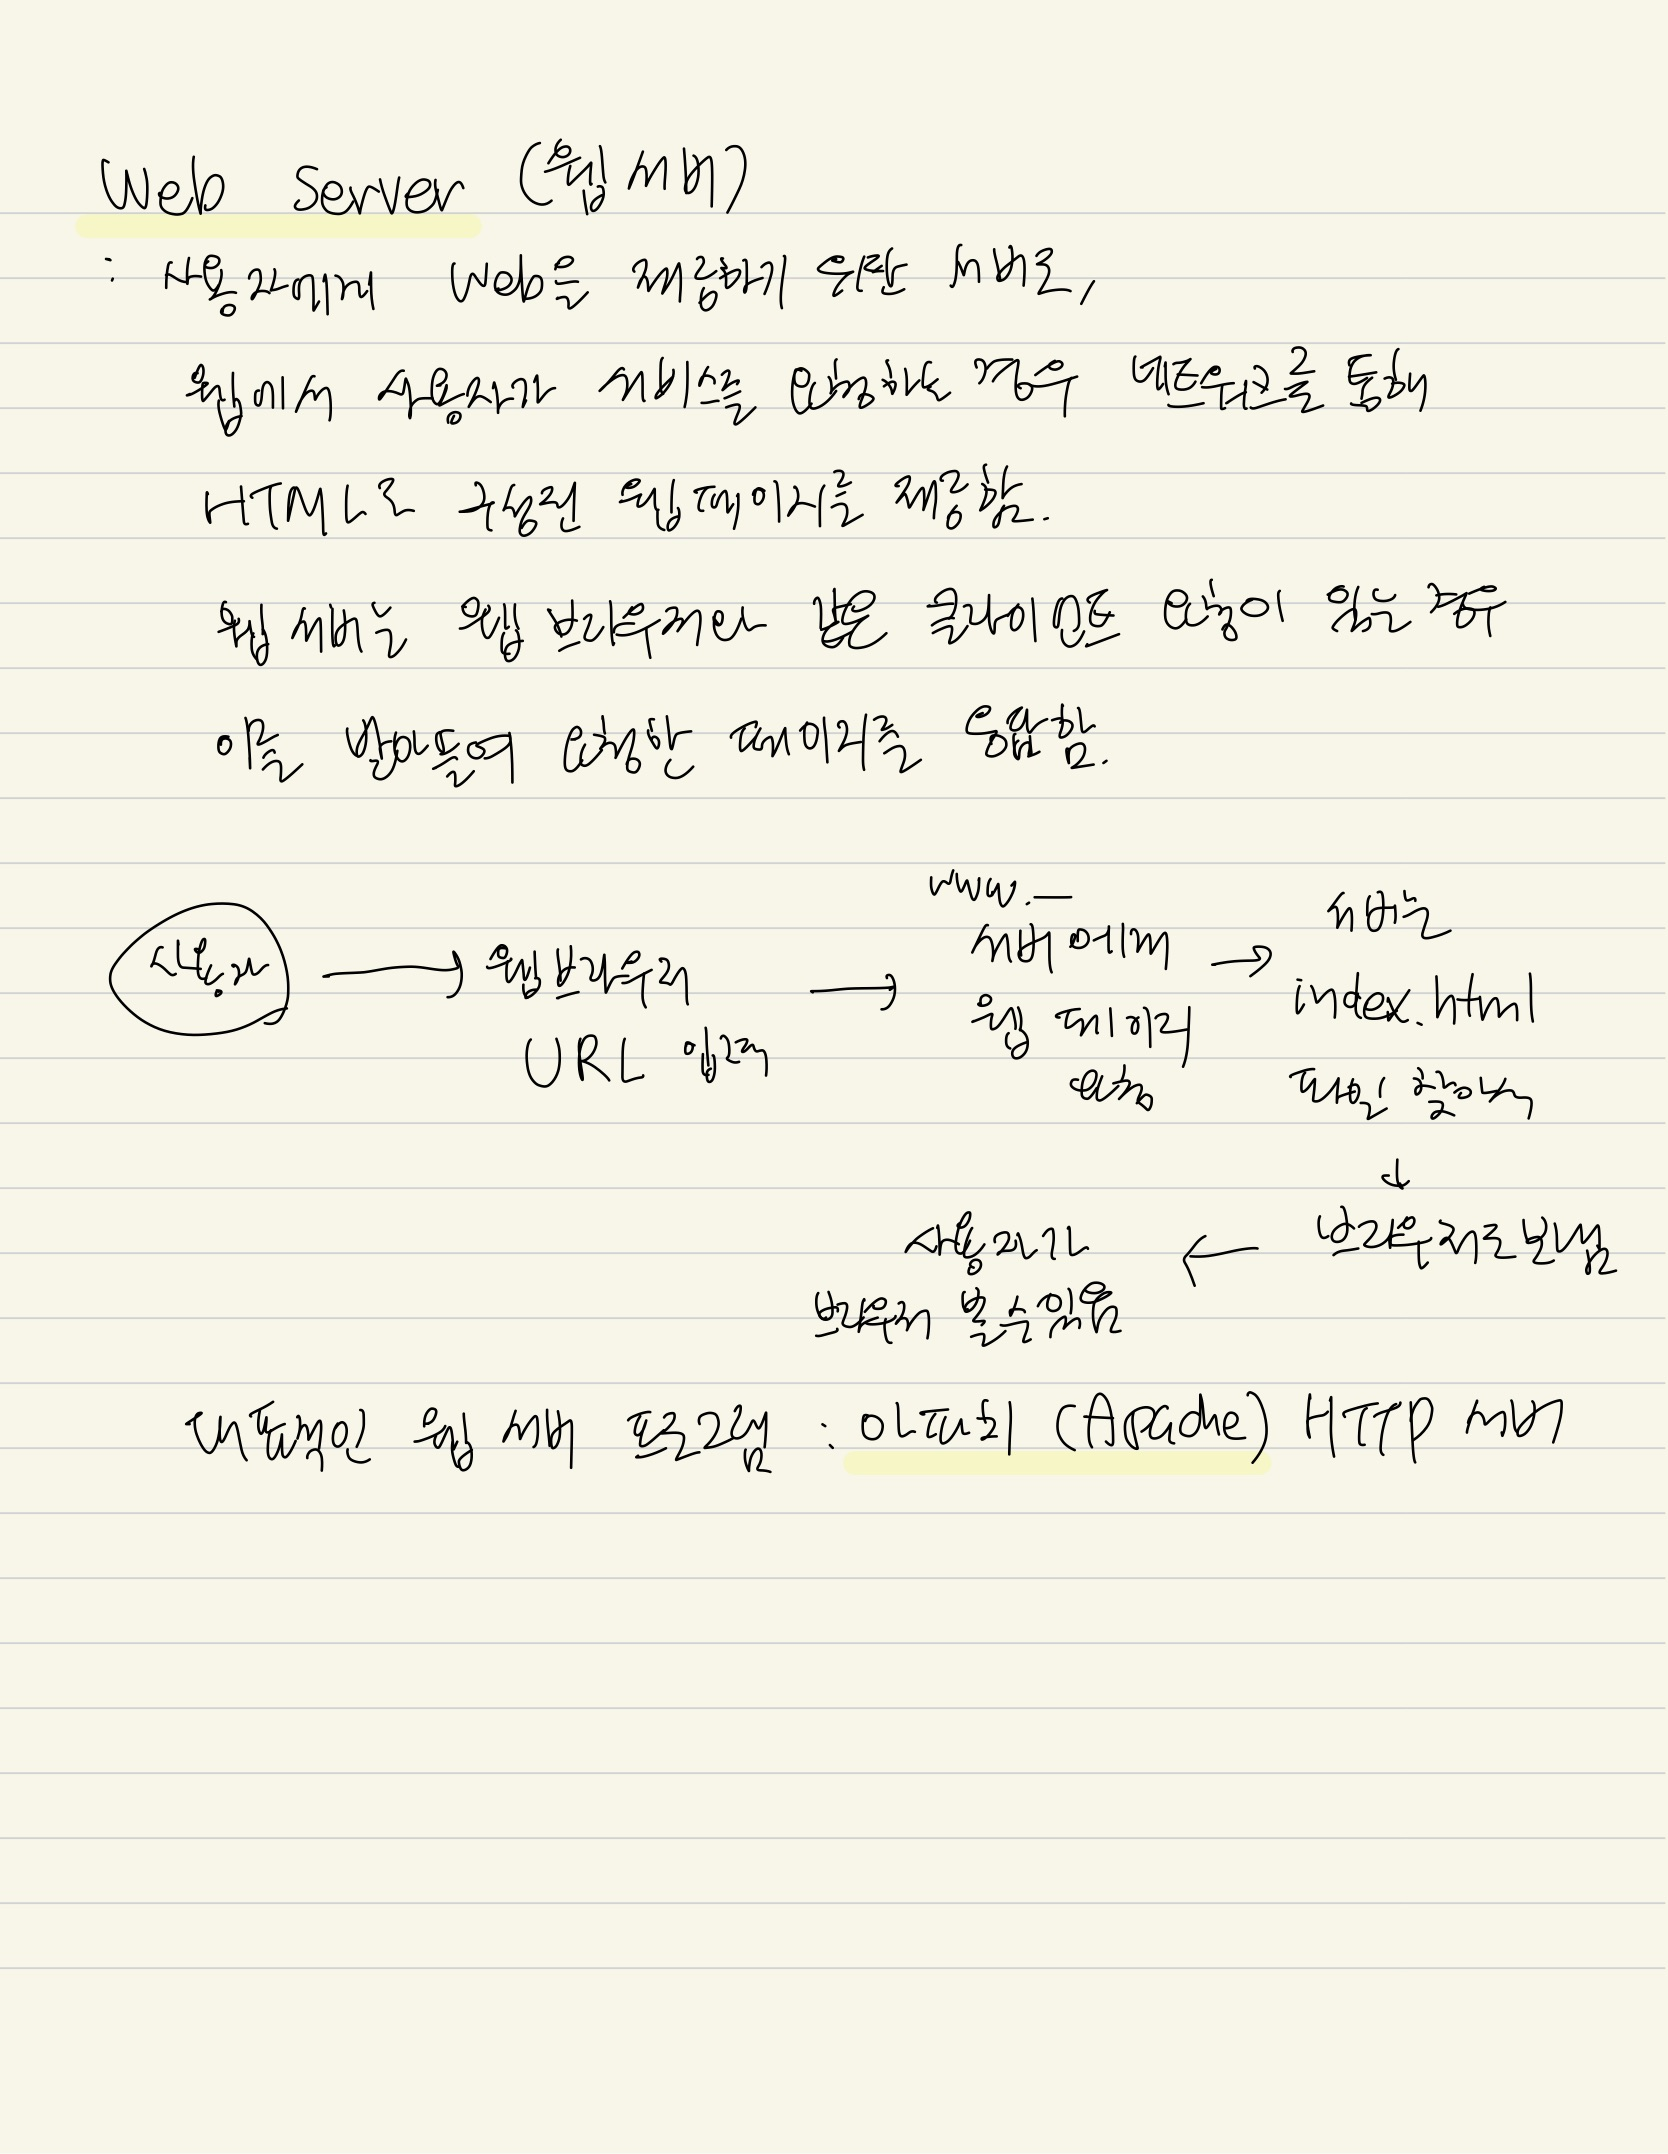 Web Server (웹 서버)
: 사용자에게 Web을 제공하기 위한 서버로,
웹에서 사용자가 서비스를 요청하는 경우 네트워크를 통해
HTML로 구성된 웹페이지를 제공함.
웹 서버는 웹 브라우저와 같은 클라이언트 요청이 있는 경우
이를 받아들여 요청한 페이지를 응답함.
사용자 → 웹브라우저
URL 입력
→ www.—
서버에게
웹 페이지
요청
→ 서버는
index.html
파일 찾아서
↓
브라우저로 보냄
← 사용자가
브라우저 볼 수 있음
대표적인 웹 서버 프로그램 : 아파치 (Apache) HTTP 서버